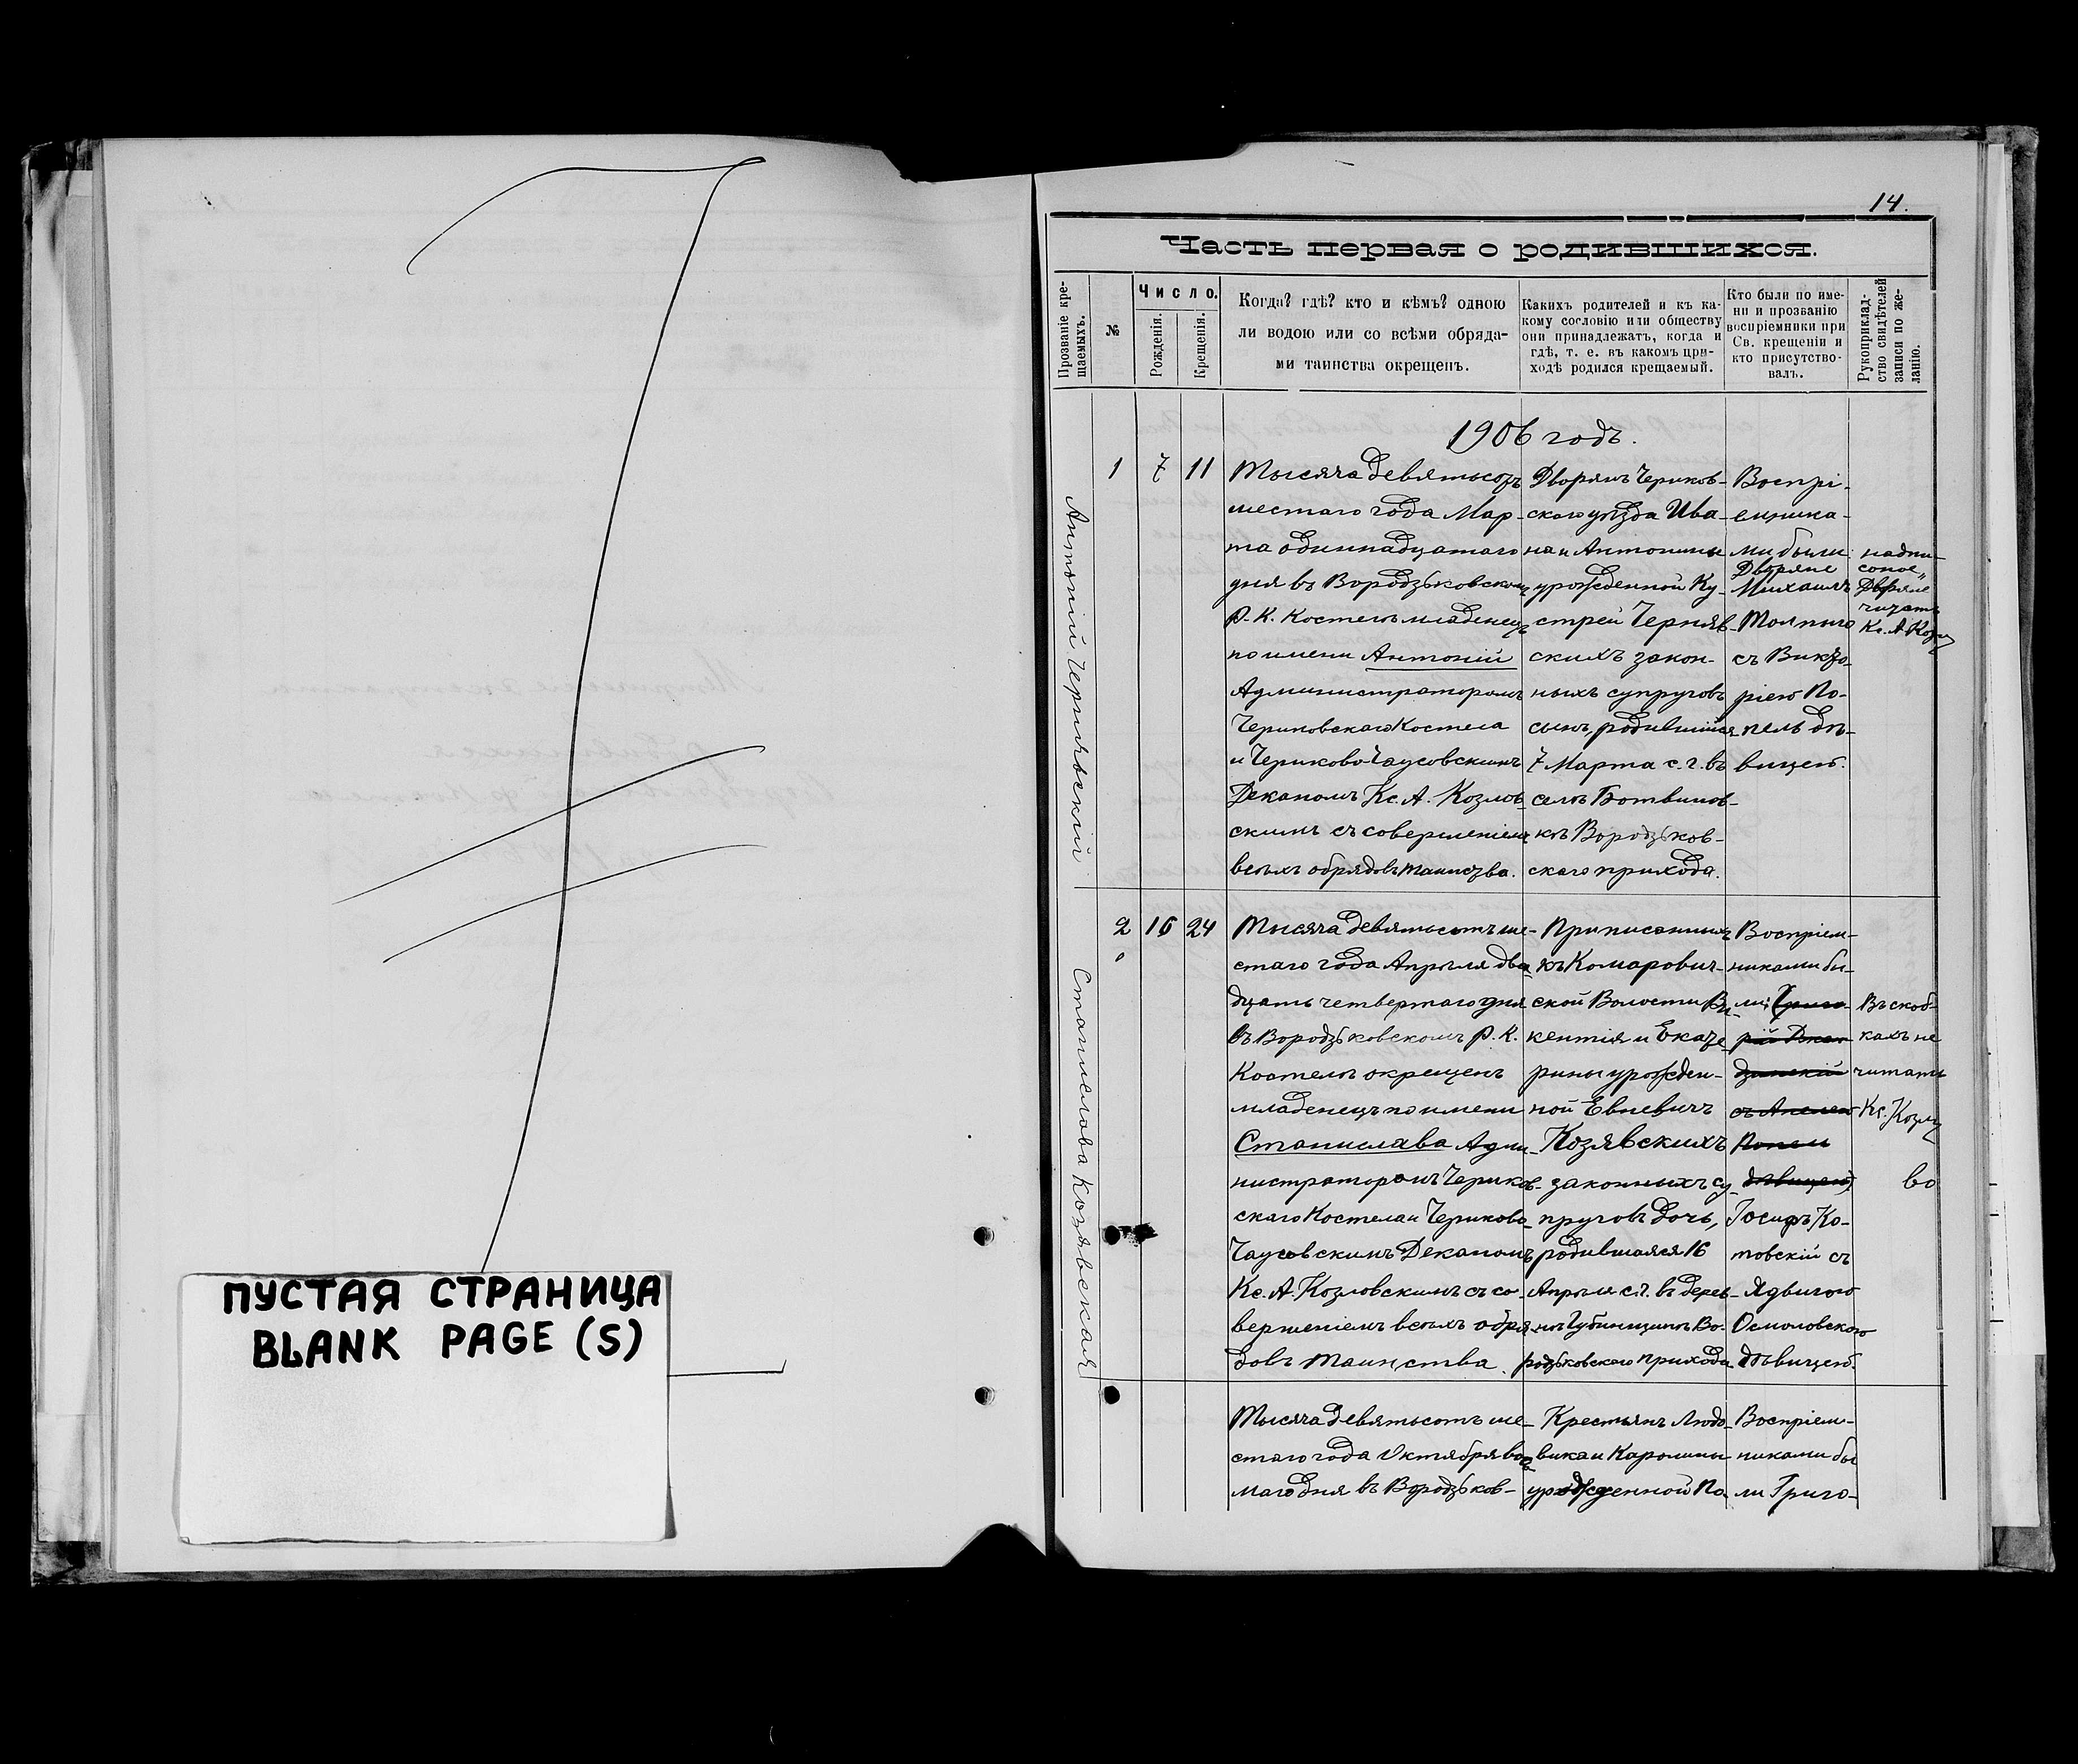 ПУСТАЯ СТРАНИЦА
BLANK PAGE (S)
14.
Часть первая о родившихся.
Прозваніе кре-
щаемыхъ.
№
Число.
Рожденія.
Крещенія.
Когда? гдѣ? кто и кѣмъ? одною
ли водою или со всѣми обряда-
ми таинства окрещенъ.
Какихъ родителей и къ ка-
кому сословію или обществу
они принадлежатъ, когда и
гдѣ, т. е. въ какомъ при-
ходѣ родился крещаемый.
Кто были по име-
ни и прозванію
воспріемники при
Св. крещеніи и
кто присутство-
валъ.
Рукоприклад-
ство свидѣтелей
записи по же-
ланію.
1906 годъ.
Антоній Чернявскій
1 7 11
Тысяча девятьсотъ
шестаго года Мар-
та одиннадцатаго
дня въ Вородзьковскомъ
Р. К. Костелѣ младенецъ
по имени Антоній
Администраторомъ
Чериковскаго Костела
и Чериково-Чаусовскимъ
Деканомъ Кс. А. Козлов-
скимъ съ совершеніемъ
всѣхъ обрядовъ таинства.
Дворянъ Чериков-
скаго уѣзда Ива-
на и Антонины
урожденной Ку-
стрей Черняв-
скихъ закон-
ныхъ супруговъ
сынъ, родившійся
7 Марта с. г. въ
селѣ Ботвинов-
кѣ Вородзьков-
скаго прихода.
Воспрі-
емника-
ми были:
Дворяне
Михаилъ
Толпыго
съ Викто-
ріею По-
пель дѣ-
вицею.
надпи-
саное
„Дворяне
читать
Кс. А. Козл
Станислава Козявская
2 16 24
Тысяча девятьсотъ ше-
стаго года Апрѣля два-
дцать четвертаго дня
въ Вородзьковскомъ Р. К.
Костелѣ окрещенъ
младенецъ по имени
Станислава Адми-
нистраторомъ Чериков-
скаго Костела и Чериково-
Чаусовскимъ Деканомъ
Кс. А. Козловскимъ съ со-
вершеніемъ всѣхъ обря-
довъ Таинства.
Приписанныхъ
къ Комарович-
ской Волости Ви-
кентія и Екате-
рины урожден-
ной Евневичъ
Козявскихъ
законныхъ су-
пруговъ дочь,
родившаяся 16
Апрѣля с. г. въ дерев-
нѣ Губинщинѣ Во-
родзьковскаго прихода.
Воспріем-
никами бы-
ли: (Григо-
рій
съ
дѣвицею)
Іосифъ Ко-
товскій съ
Ядвигою
Осмоловскою
дѣвицею.
Въ скоб-
кахъ не
читать
Кс. Козл
во
Тысяча девятьсотъ ше-
стаго года Октября вось-
маго дня въ Вородзьков-
Крестьянъ Людо-
вика и Каролины
урожденной По-
Воспріем-
никами бы
ли Григо-